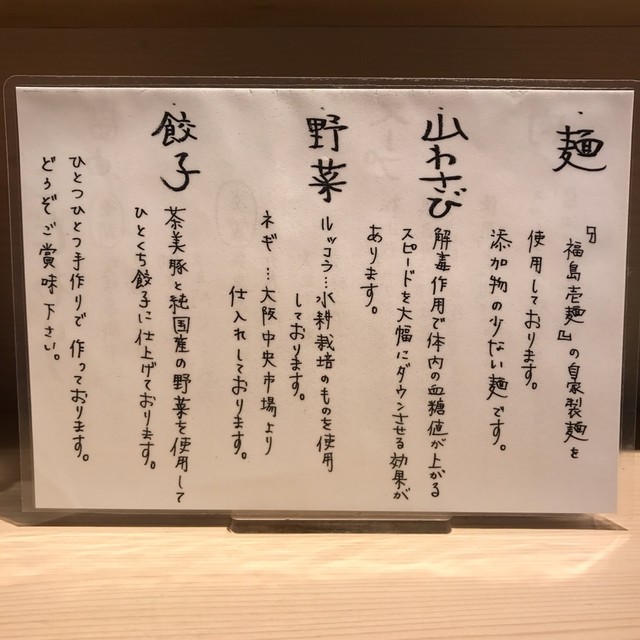 麺
『福島壱麺』の自家製麺を
使用しております。
添加物の少ない麺です。
山わさび
解毒作用で体内の血糖値が上がる
スピードを大幅にダウンさせる効果が
あります。
野菜
ルッコラ…水耕栽培のものを使用
しております。
ネギ…大阪中央市場より
仕入れしております。
餃子
茶美豚と純国産の野菜を使用して
ひとくち餃子に仕上げております。
ひとつひとつ手作りで作っております。
どうぞご賞味下さい。